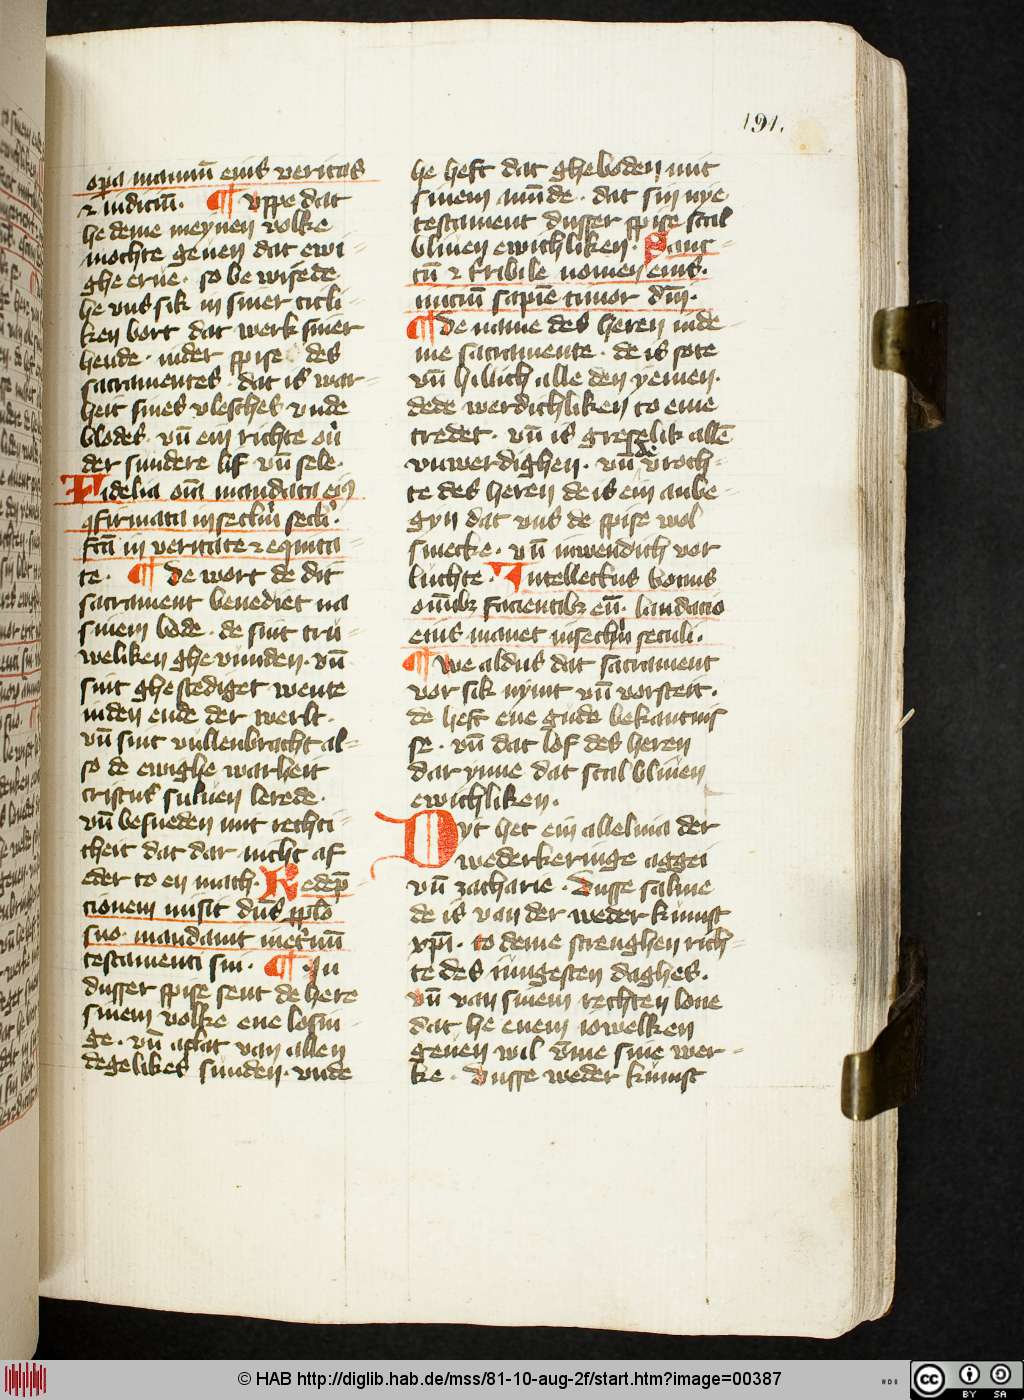 191.
opa manuū eius veritas
⁊ iudiciū. ¶ vppe dat
he deme meynen volke
mochte geuen dat ewi-
ghe erue. so be wisede
he vns sik in siner titli-
ken bort dat werk siner
hende. in der spise des
sacramentes. dat is war-
heit sines vlesches vnde
blodes. vn̄ ein richte ou̓
der sundere lif vn̄ sele.
Fidelia oīa mandata eiꝰ
ꝯfirmata in seclm̄ secli.
fcā in veritate ⁊ equita-
te. ¶ De wort de dit
sacrament benediet na
sinem bode. de sint tru-
weliken ghe vunden. vn̄
sint ghe stediget wente
in den ende der werlt.
vn̄ sint vullenbracht al-
so de ewighe warheit
cristus suluen lerede.
vn̄ besneden mit rechti-
cheit dat dar nicht af
eder to en mach. Redēp-
cionem misit dn̄s pplo
suo. mandauit inet̓nū
testamentū sūū. ¶ In
dusser spise sent de here
sinem volke ene losin-
ge. vn̄ aflat van allen
degelikes sunden. vnde
he heft dat gheboden mit
sinem mūde. dat sin nye
testament dusser spise scal
bliuen ewichliken. Sanc-
tū ⁊ t̓ribile nomen eius.
iniciū sapīe timor dn̄i.
¶ De name des heren in de-
me sacramente. de is sote
vn̄ hillich alle den yenen.
dede werdichliken to eme
tredet. vn̄ is greselik allē
vnwerdighen. vn̄ de vroch-
te des heren de is ein anbe-
gyn dat vns de spise wol
smecke. vn̄ inwendich vor
luchte. Intellectus bonus
om̄ibꝫ facientibꝫ eū. laudacio
eius manet in seclm̄ seculi.
¶ We aldus dat sacrament
vor sik nymt vn̄ vorsteit.
de heft ene gude bekantnis
se. vn̄ dat lof des heren
dar ynne dat scal bliuen
ewichliken.
Dyt het ein alleluia der
wederkeringe aggei
vn̄ zacharie. Dusse salme
de is van der weder kumst
xpī. to deme strenghen rich-
te des iungesten daghes.
vn̄ van sinem rechten lone
dat he enem iowelken
geuen wil vm̄e sine wer-
ke. Dusse weder kumst
© HAB http://diglib.hab.de/mss/81-10-aug-2f/start.htm?image=00387
cc
BY SA